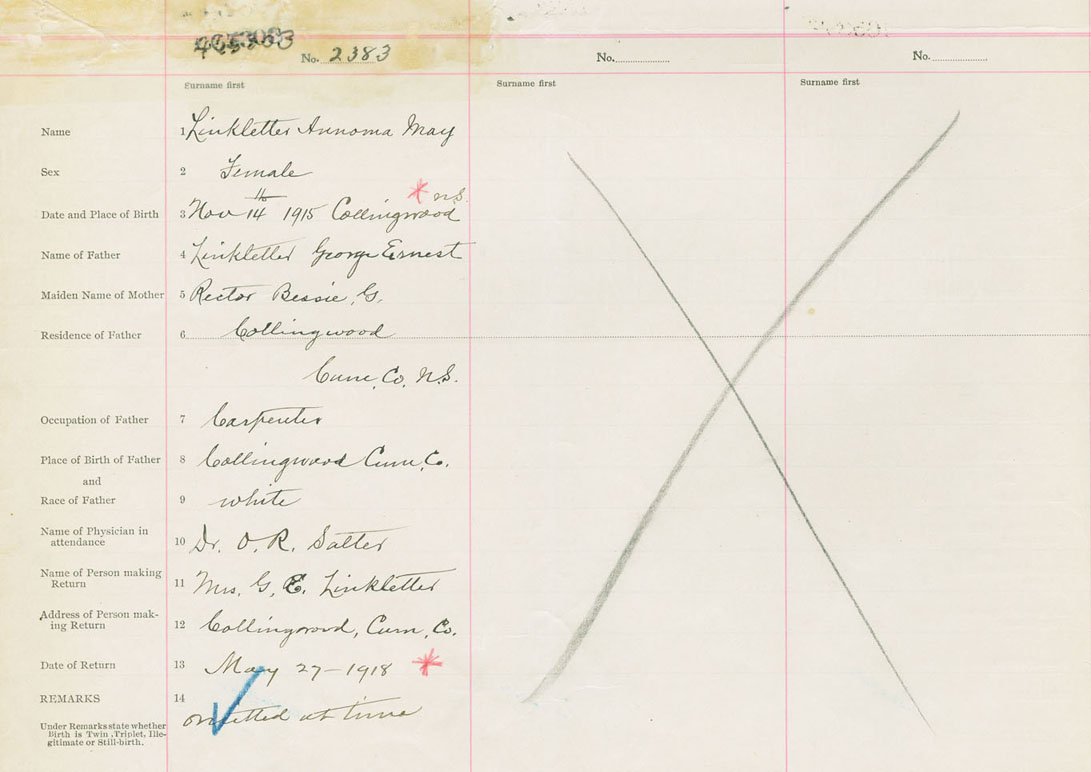 No. 2383
No.
No.
Surname first
Surname first
Surname first
Name 1 Linkletter Annoma May
Sex 2 Female
Date and Place of Birth 3 Nov 14th 1915 Collingwood N.S.
Name of Father 4 Linkletter George Ernest
Maiden Name of Mother 5 Rector Bessie, G.
Residence of Father 6 Collingwood
Cum, Co, N.S.
Occupation of Father 7 Carpenter
Place of Birth of Father 8 Collingwood Cum, Co.
and
Race of Father 9 white
Name of Physician in
attendance 10 Dr. O. R. Salter
Name of Person making
Return 11 Mrs. G. E. Linkletter
Address of Person mak-
ing Return 12 Collingwood, Cum, Co.
Date of Return 13 May 27-1918
REMARKS 14
omitted at time
Under Remarks state whether
Birth is Twin, Triplet, Ille-
gitimate or Still-birth.